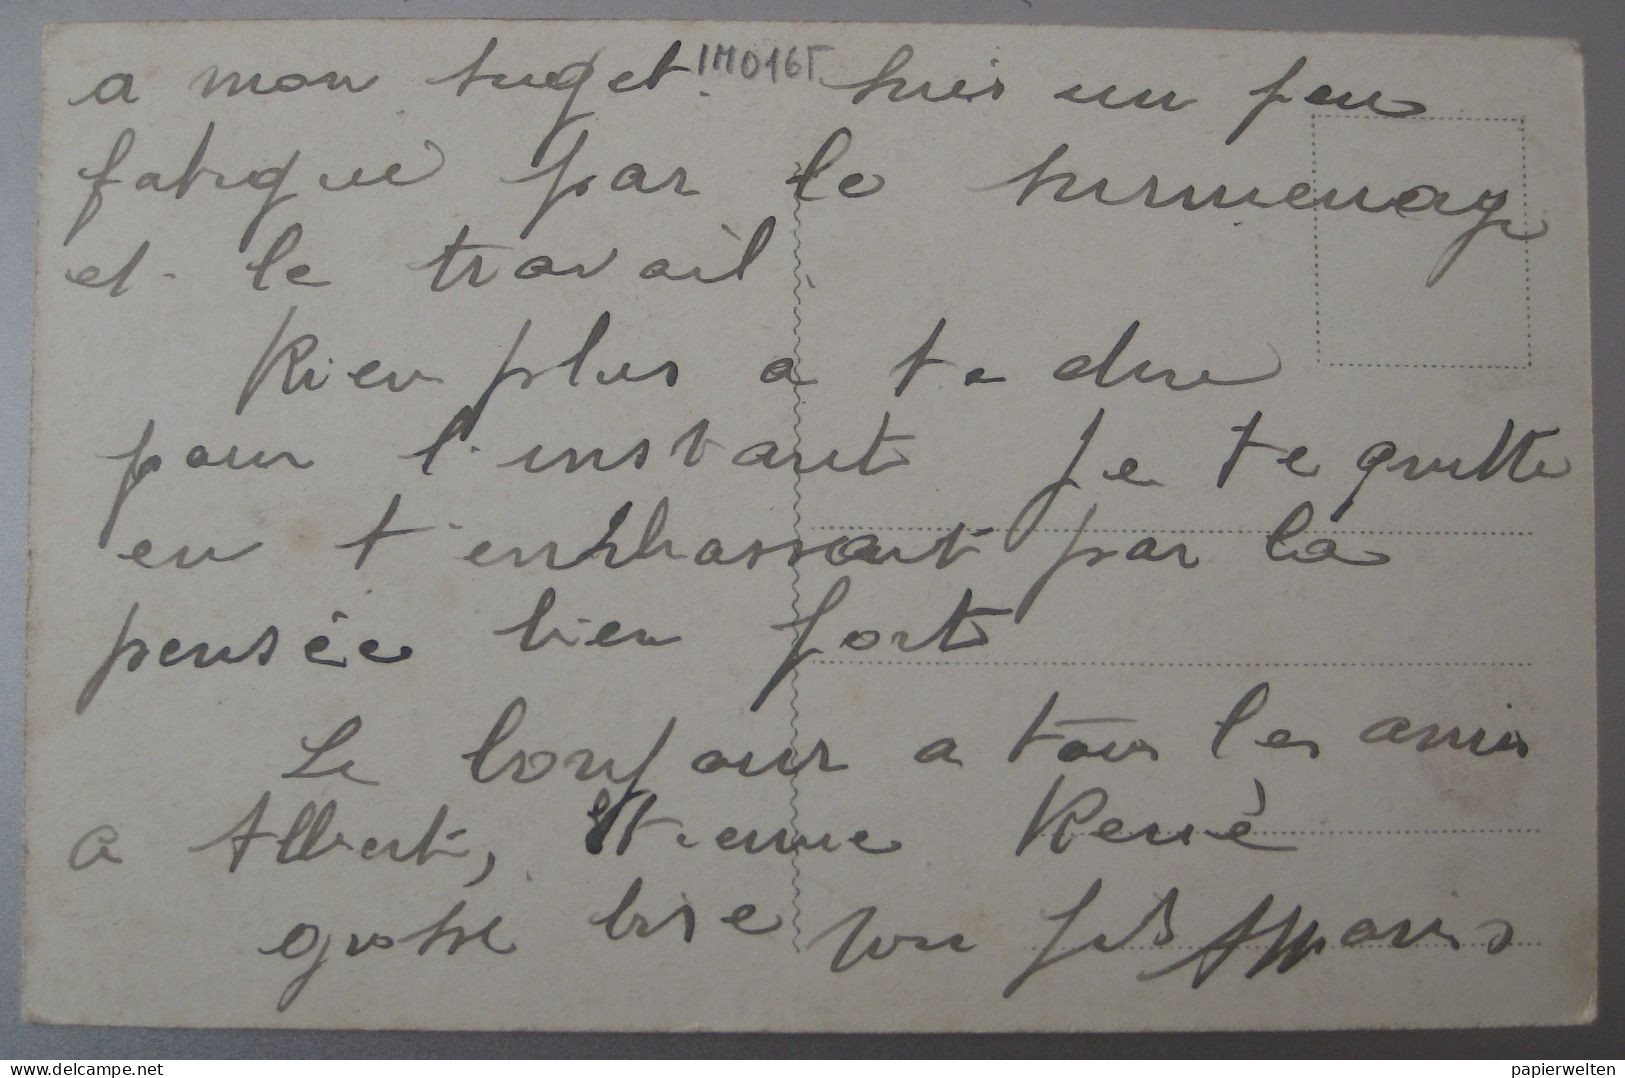 a mon suget. 1M016T suis un peu
fatigué par le surmenag
et le travail.
Rien plus a te dire
pour l'instant Je te quitte
en t'embrassant par la
pensée bien fort
Le bonjour a tous les amis
a Albert, Etienne René
grosse bise ton fils
papierwelten
delcampe.net